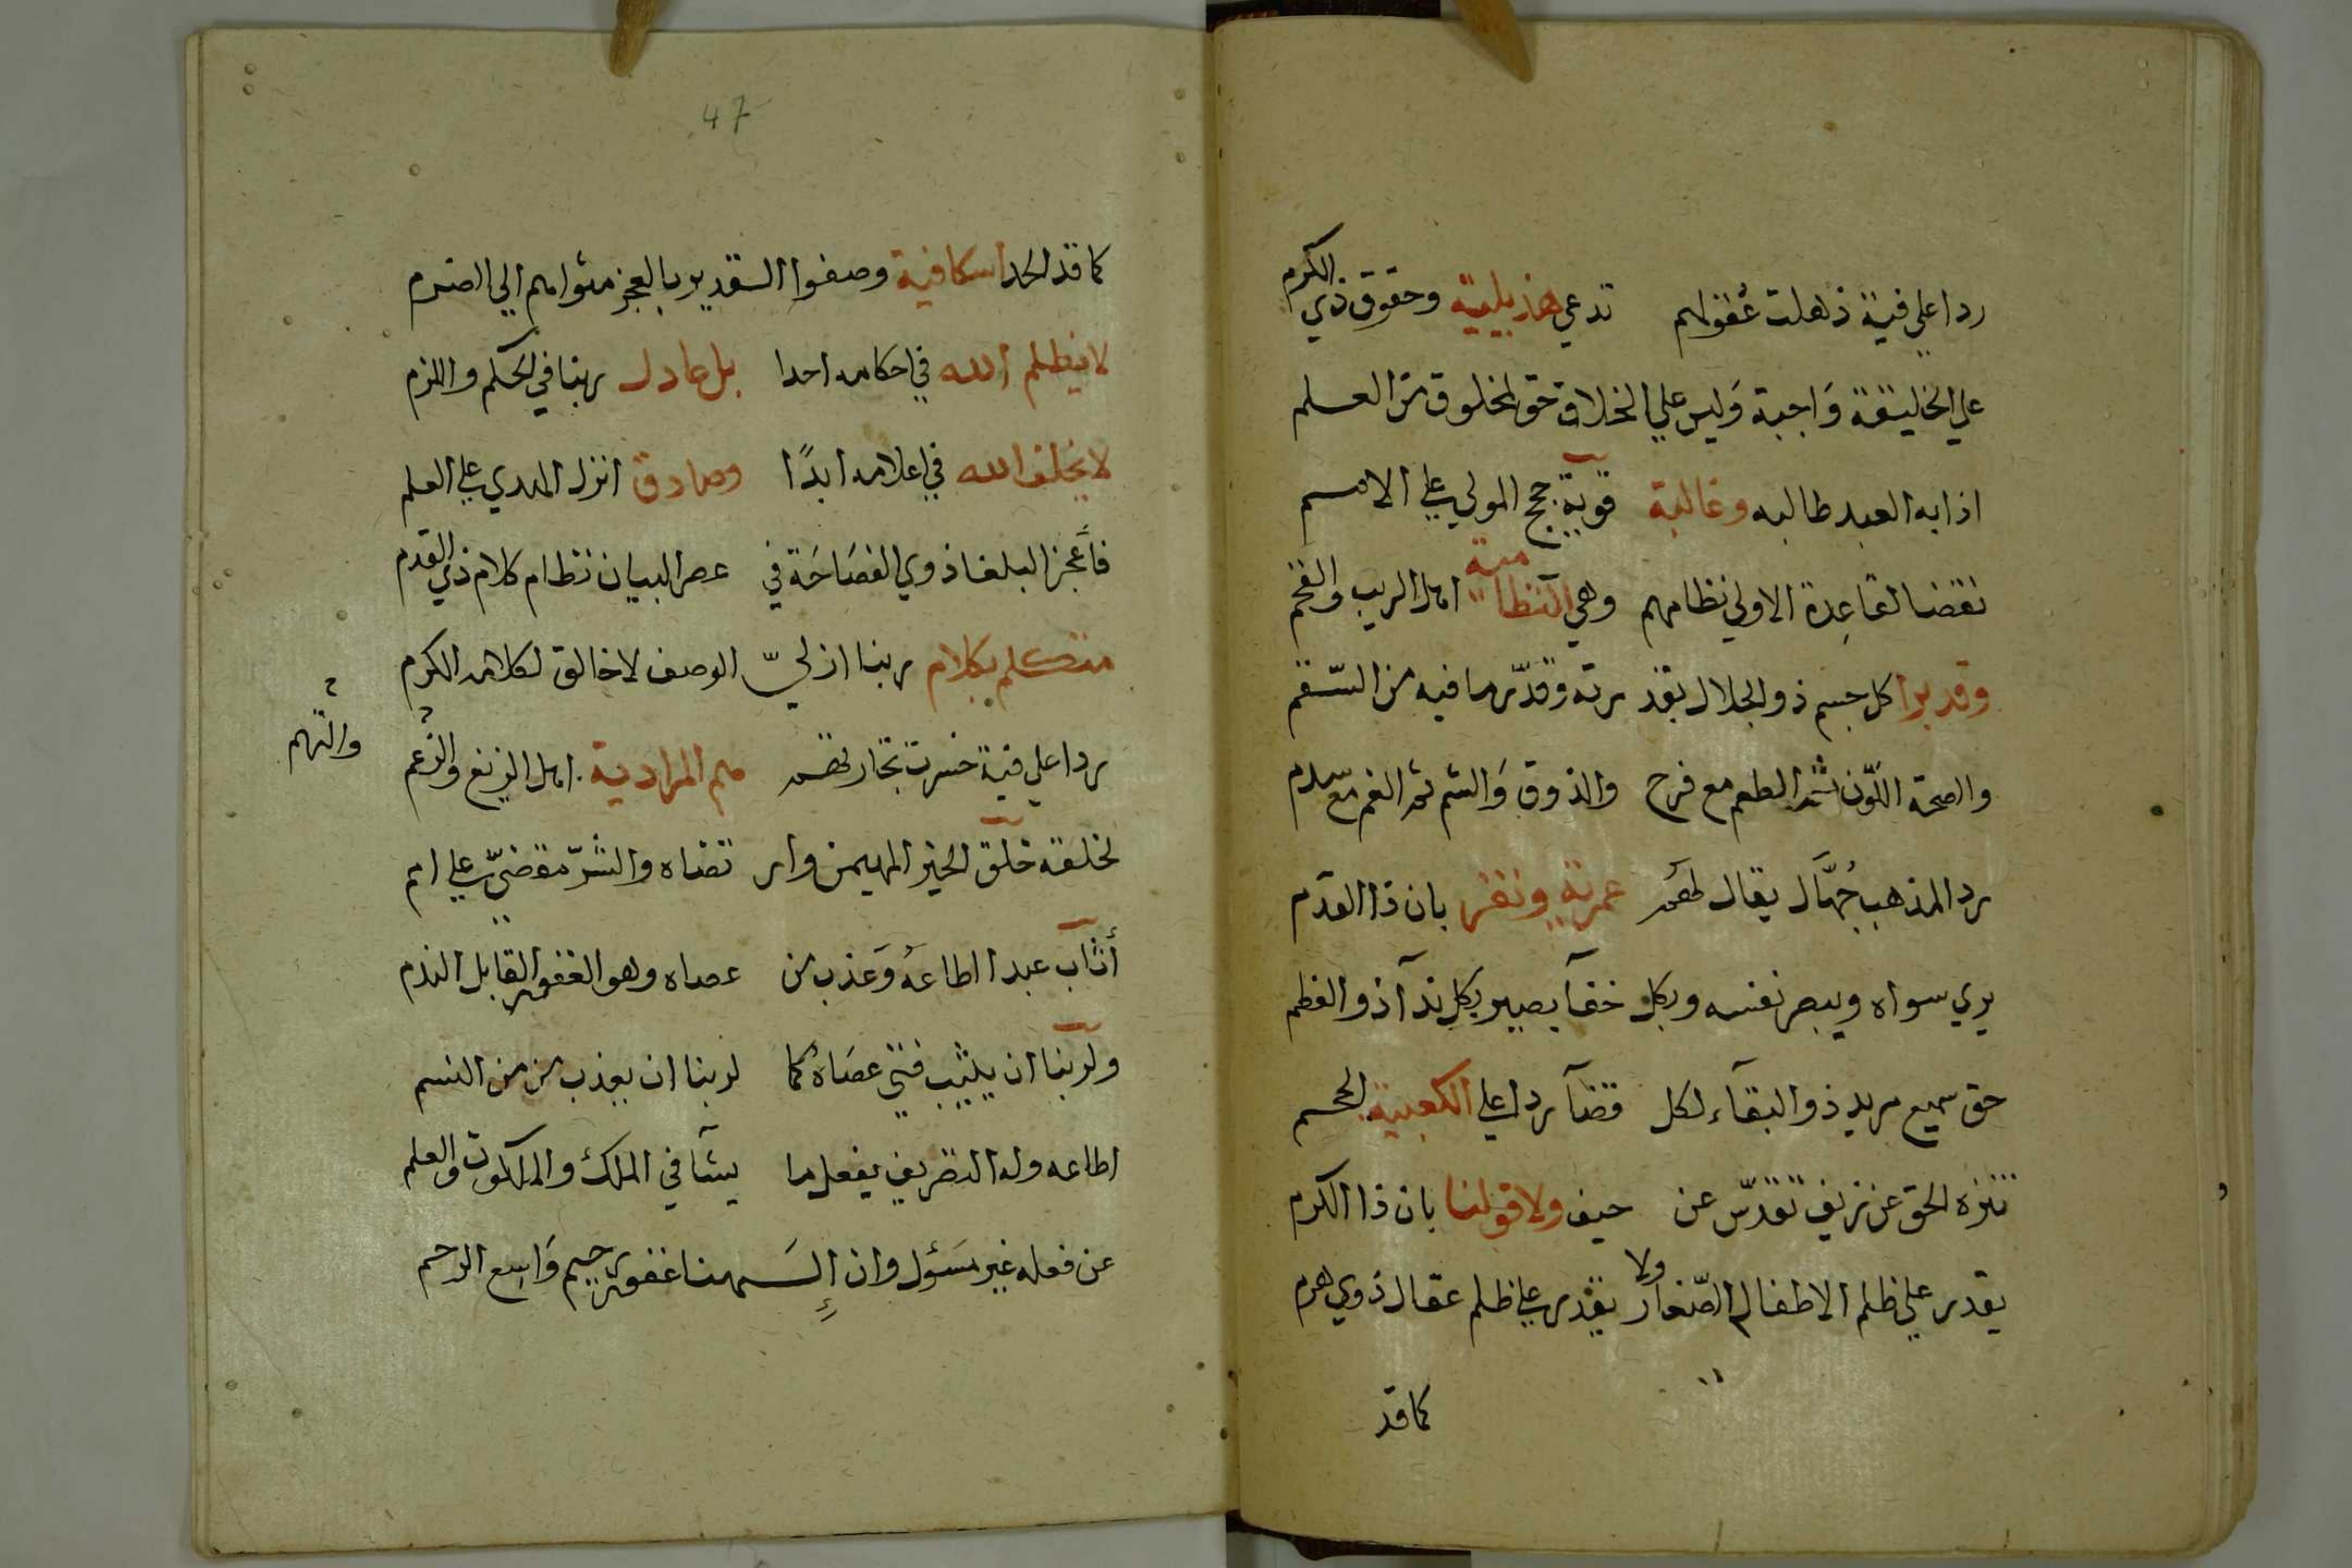 ردا علي فية ذهلت عقولهم تدعي هذيلية وحقوق ذي الكرم
علي الخليقة وَاجبة وَليس علي الخلاق حق لمخلوق من العلم
اذا به العبد طالبه وغالبة قوية حجج المولي علي الامم
نقضا لقاعِدة الاولي نظامهم وهي النظامية اهل الريب والفخم
وقديرا كل جسم ذو الجلال بقدرته وقدّر ما فيه من السّقم
والصحة اللّون ثم الطعم مع فرح والذوق وَالشم ثم الغم مع سدم
ردا لمذهب جُهّال يقال لهم عمرية ونقر بان ذا القدم
يري سواه ويبصر نفسه وبكل خفآ بصير بكل ندآ ذو العظم
حق سميع مريد ذو البقآء لكل قضآ ردا علي الكعبية لحسم
تنزه الحق عن زيف تقدّس عن حيف ولا قولنا بان ذا الكرم
يقدر علي ظلم الاطفال الصّغار ولا يقدر علي ظلم عقال ذوي هرم
كما قد
47
كما قد الحد اسكافية وصفوا القدير بالعجز مثواهم الي الضرم
لا يظلم الله في احكامه احدا بل عادل ربنا في الحكم واللزم
لا يخلف الله في اعلامه ابدًا وصادق انزل الهدي علي العلم
فأعجز البلغا ذوي الفصَاحَة في عصر البيان نظام كلام ذي القدم
متكلم بكلام ربنا ازليّ الوصف لا خالق لكلامه الكرم
ردا علي فية خسرت تجارتهم هم المرادية اهل الزيغ والزعم
والتهم
لخلقه خلق الخير المهيمن وار تضاه والشرّ مقضيّ علي امم
أثاب عبدا اطاعهُ وَعذب من عصاه وهو الغفور القابل الندم
ولربنا ان يثيب فتي عصَاهُ كما لربنا ان يعذب من من النسم
اطاعه وله التصريف يفعل ما يشآ في الملك والملكوت والعلم
عن فعله غير مسَؤل وان إلَـهنا غفور رحيم وَاسِع الرحم